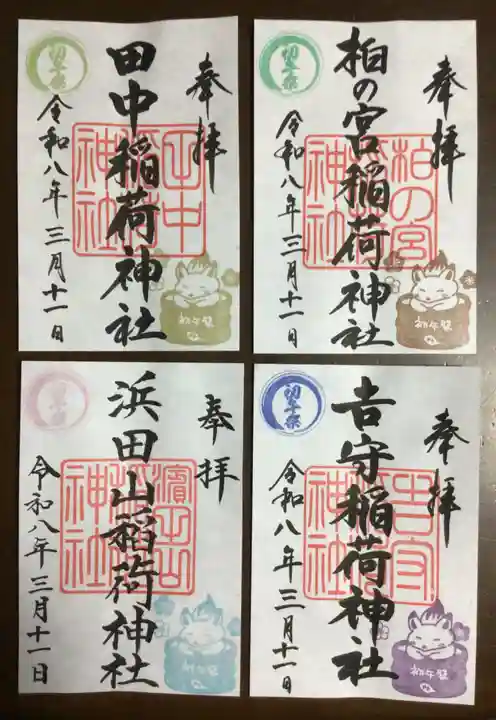 奉拝
田中稲荷神社
田中稲荷神社
令和八年三月十一日
初午祭
初午祭
奉拝
柏の宮稲荷神社
柏の宮稲荷神社
令和八年三月十一日
初午祭
初午祭
奉拝
浜田山稲荷神社
濱田山稲荷神社
令和八年三月十一日
初午祭
奉拝
吉守稲荷神社
吉守稲荷神社
令和八年三月十一日
初午祭
初午祭